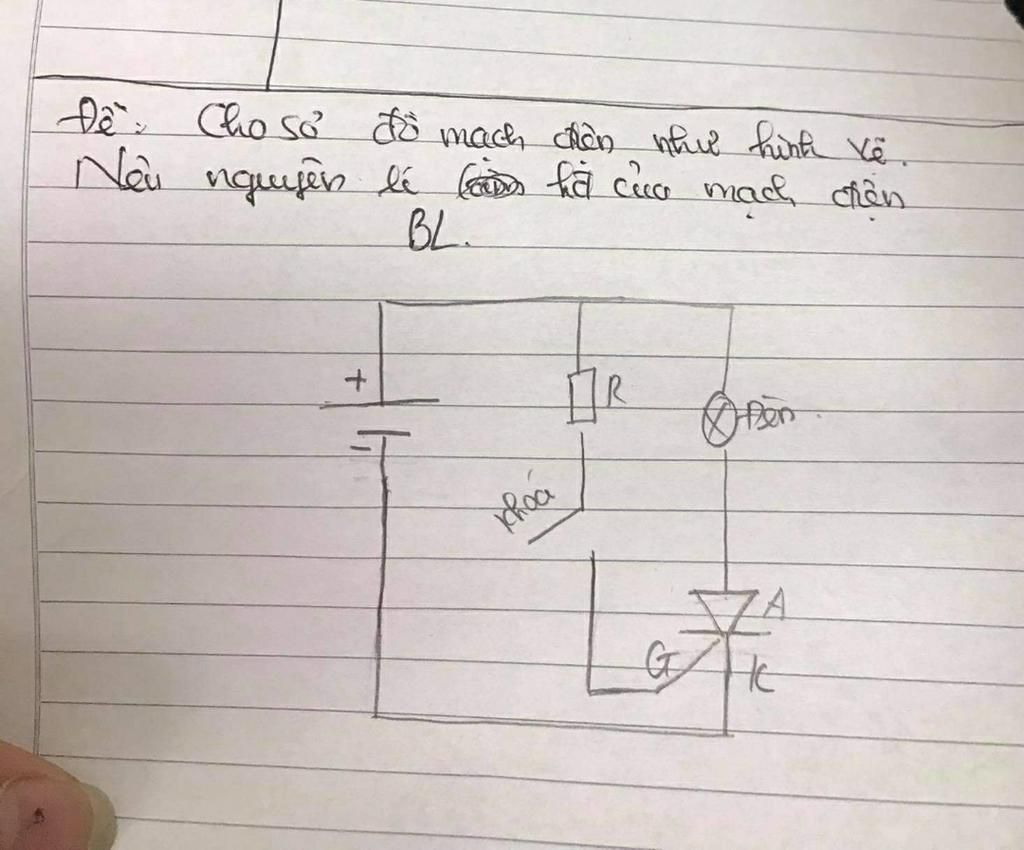 Đề: Cho sơ đồ mạch điện như hình vẽ.
Nêu nguyên lí của mạch điện
BL.
+
R
Đèn
-
khoá
A
G
K